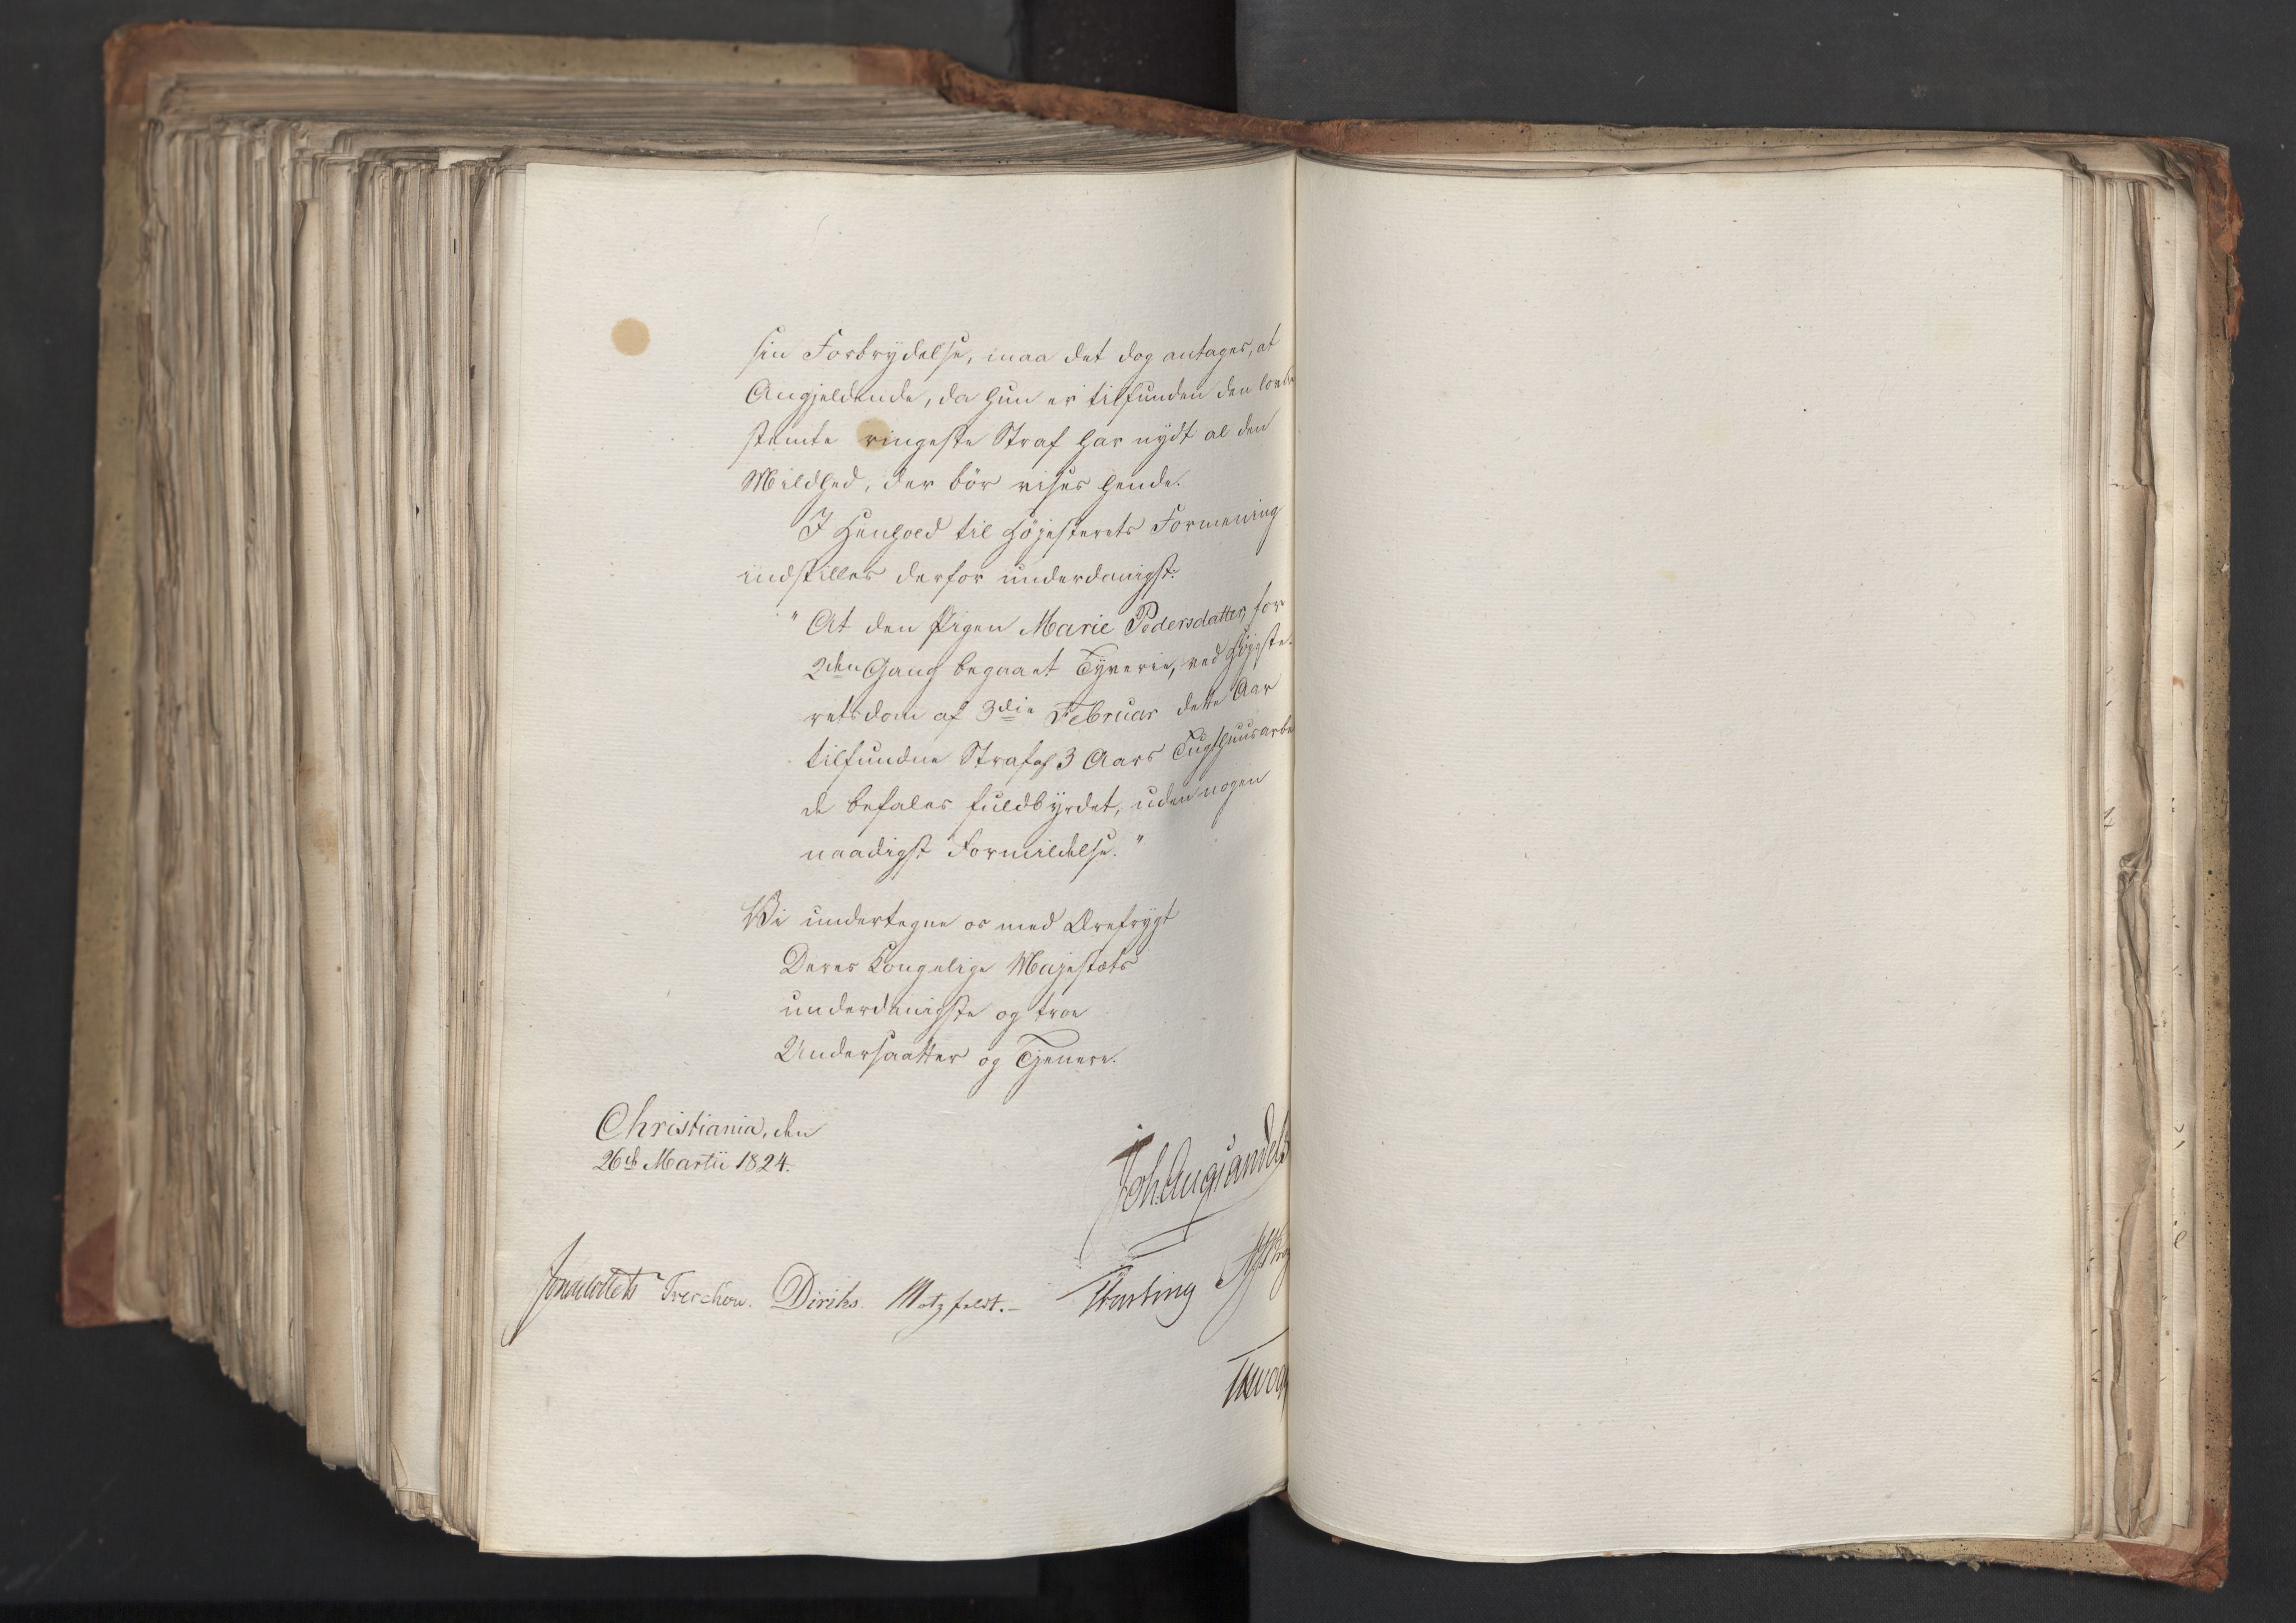 sin Forbrydelse, maa det dog antages, at
Angjeldende, da hun er tilfunden den lovbe
stemte ringeste Straf har nydt al den
Mildhed, der bör vises hende.
I Henhold til Höjesterets Formening
indstilles derfor underdanigst:
"At den Pigen Marie Pedersdatter, for
2den Gang begaaet Tyverie, ved Höjeste-
retsdom af 3die Februar dette Aar
tilfundne Straf af 3 Aars Tugthuusarbei
de befales fuldbyrdet, uden nogen
naadigst Formildelse."
Vi undertegne os med Ærefrygt
Deres Kongelige Majestæts
underdanigste og troe
Undersaatter og Tjenere.
Christiania, den
26de Martii 1824.
Joh. Aug. Sandels
Jonas Collett Treschow. Diriks. Motzfeldt.- Fasting